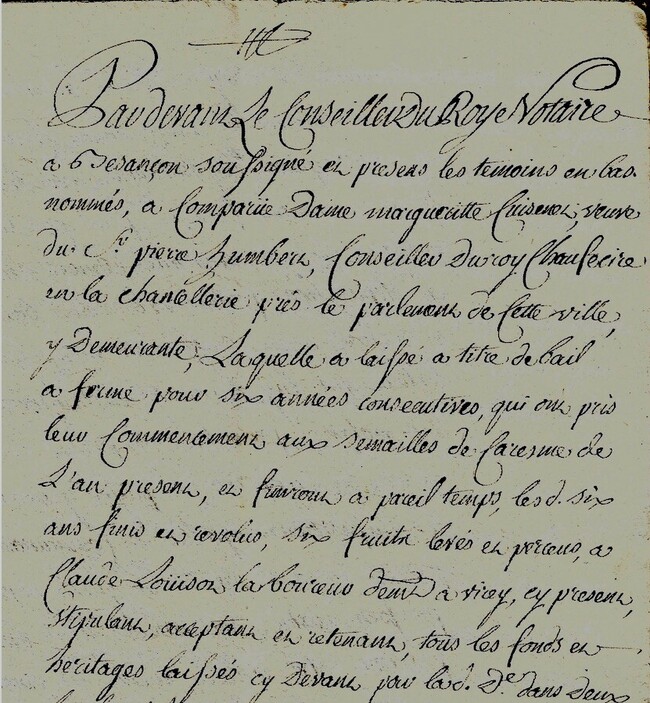 Pardevant Le Conseiller Du Roy Notaire
a Besançon soussigné et presens les temoins en bas
nommés, a Comparüe Dame margueritte Cuisenet, veuve
du Sr. pierre humbert, Conseiller Du roy Chaufecire
en la chancellerie prés le parlement de Cette ville,
y Demeurante, Laquelle a laissé a titre de bail
a ferme pour six années consecutives, qui ont pris
leur Commencement aux semailles de Caresme de
L'an present, et finiront a pareil temps, les d. six
ans finis et revolus, six fruits levés et percens, a
Claude Louison laboureur demt a vicy, cy present,
stipulant, acceptant et retenant, tous les fonds et
heritages laissés cy Devant par lad. De. dans deux